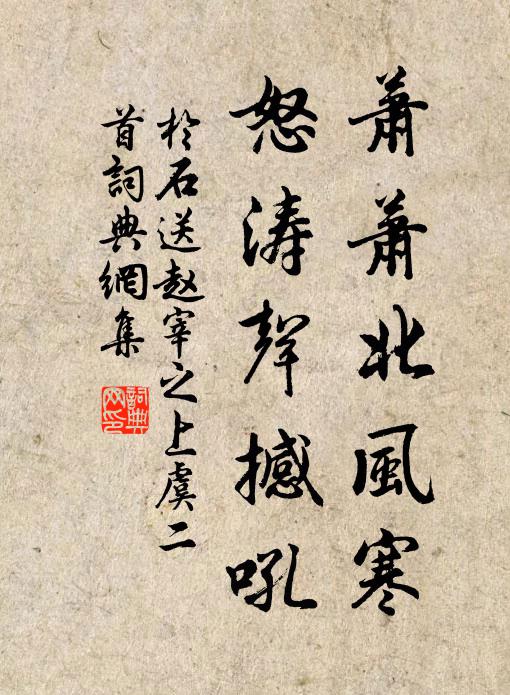 蕭蕭北風寒
怒濤聲撼吼
於石送赵宰之上虞二
首詞典網集
詞典
网印